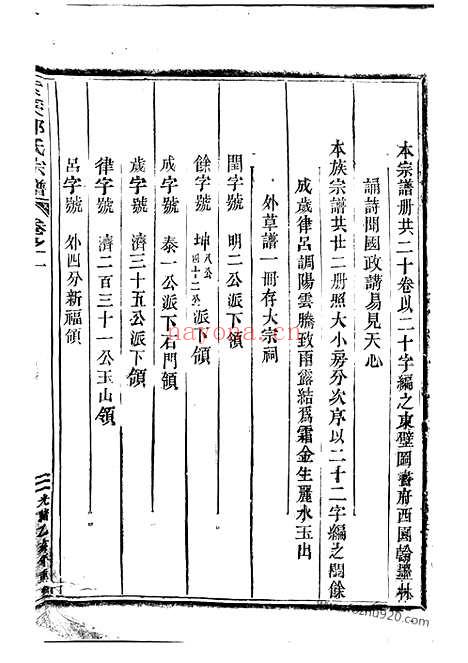 本宗譜册共二十卷以二十字編之東璧圖書府西園翰墨林
誦詩聞國政講易見天心
本族宗譜共廿二册照大小房分次序以二十二字編之閏餘
成歲律呂調陽雲騰致雨露結爲霜金生麗水玉出
外草譜一冊存大宗祠
閏字號 明二公派下領
餘字號 坤八公四十二公派下領
成字號 泰一公派下石門領
歲字號 濟三十五公派下領
律字號 濟二百三十一公玉山領
呂字號 外四分新福領
氏宗譜 卷之一
光緒乙亥
nayona.cn
fozhu920.com